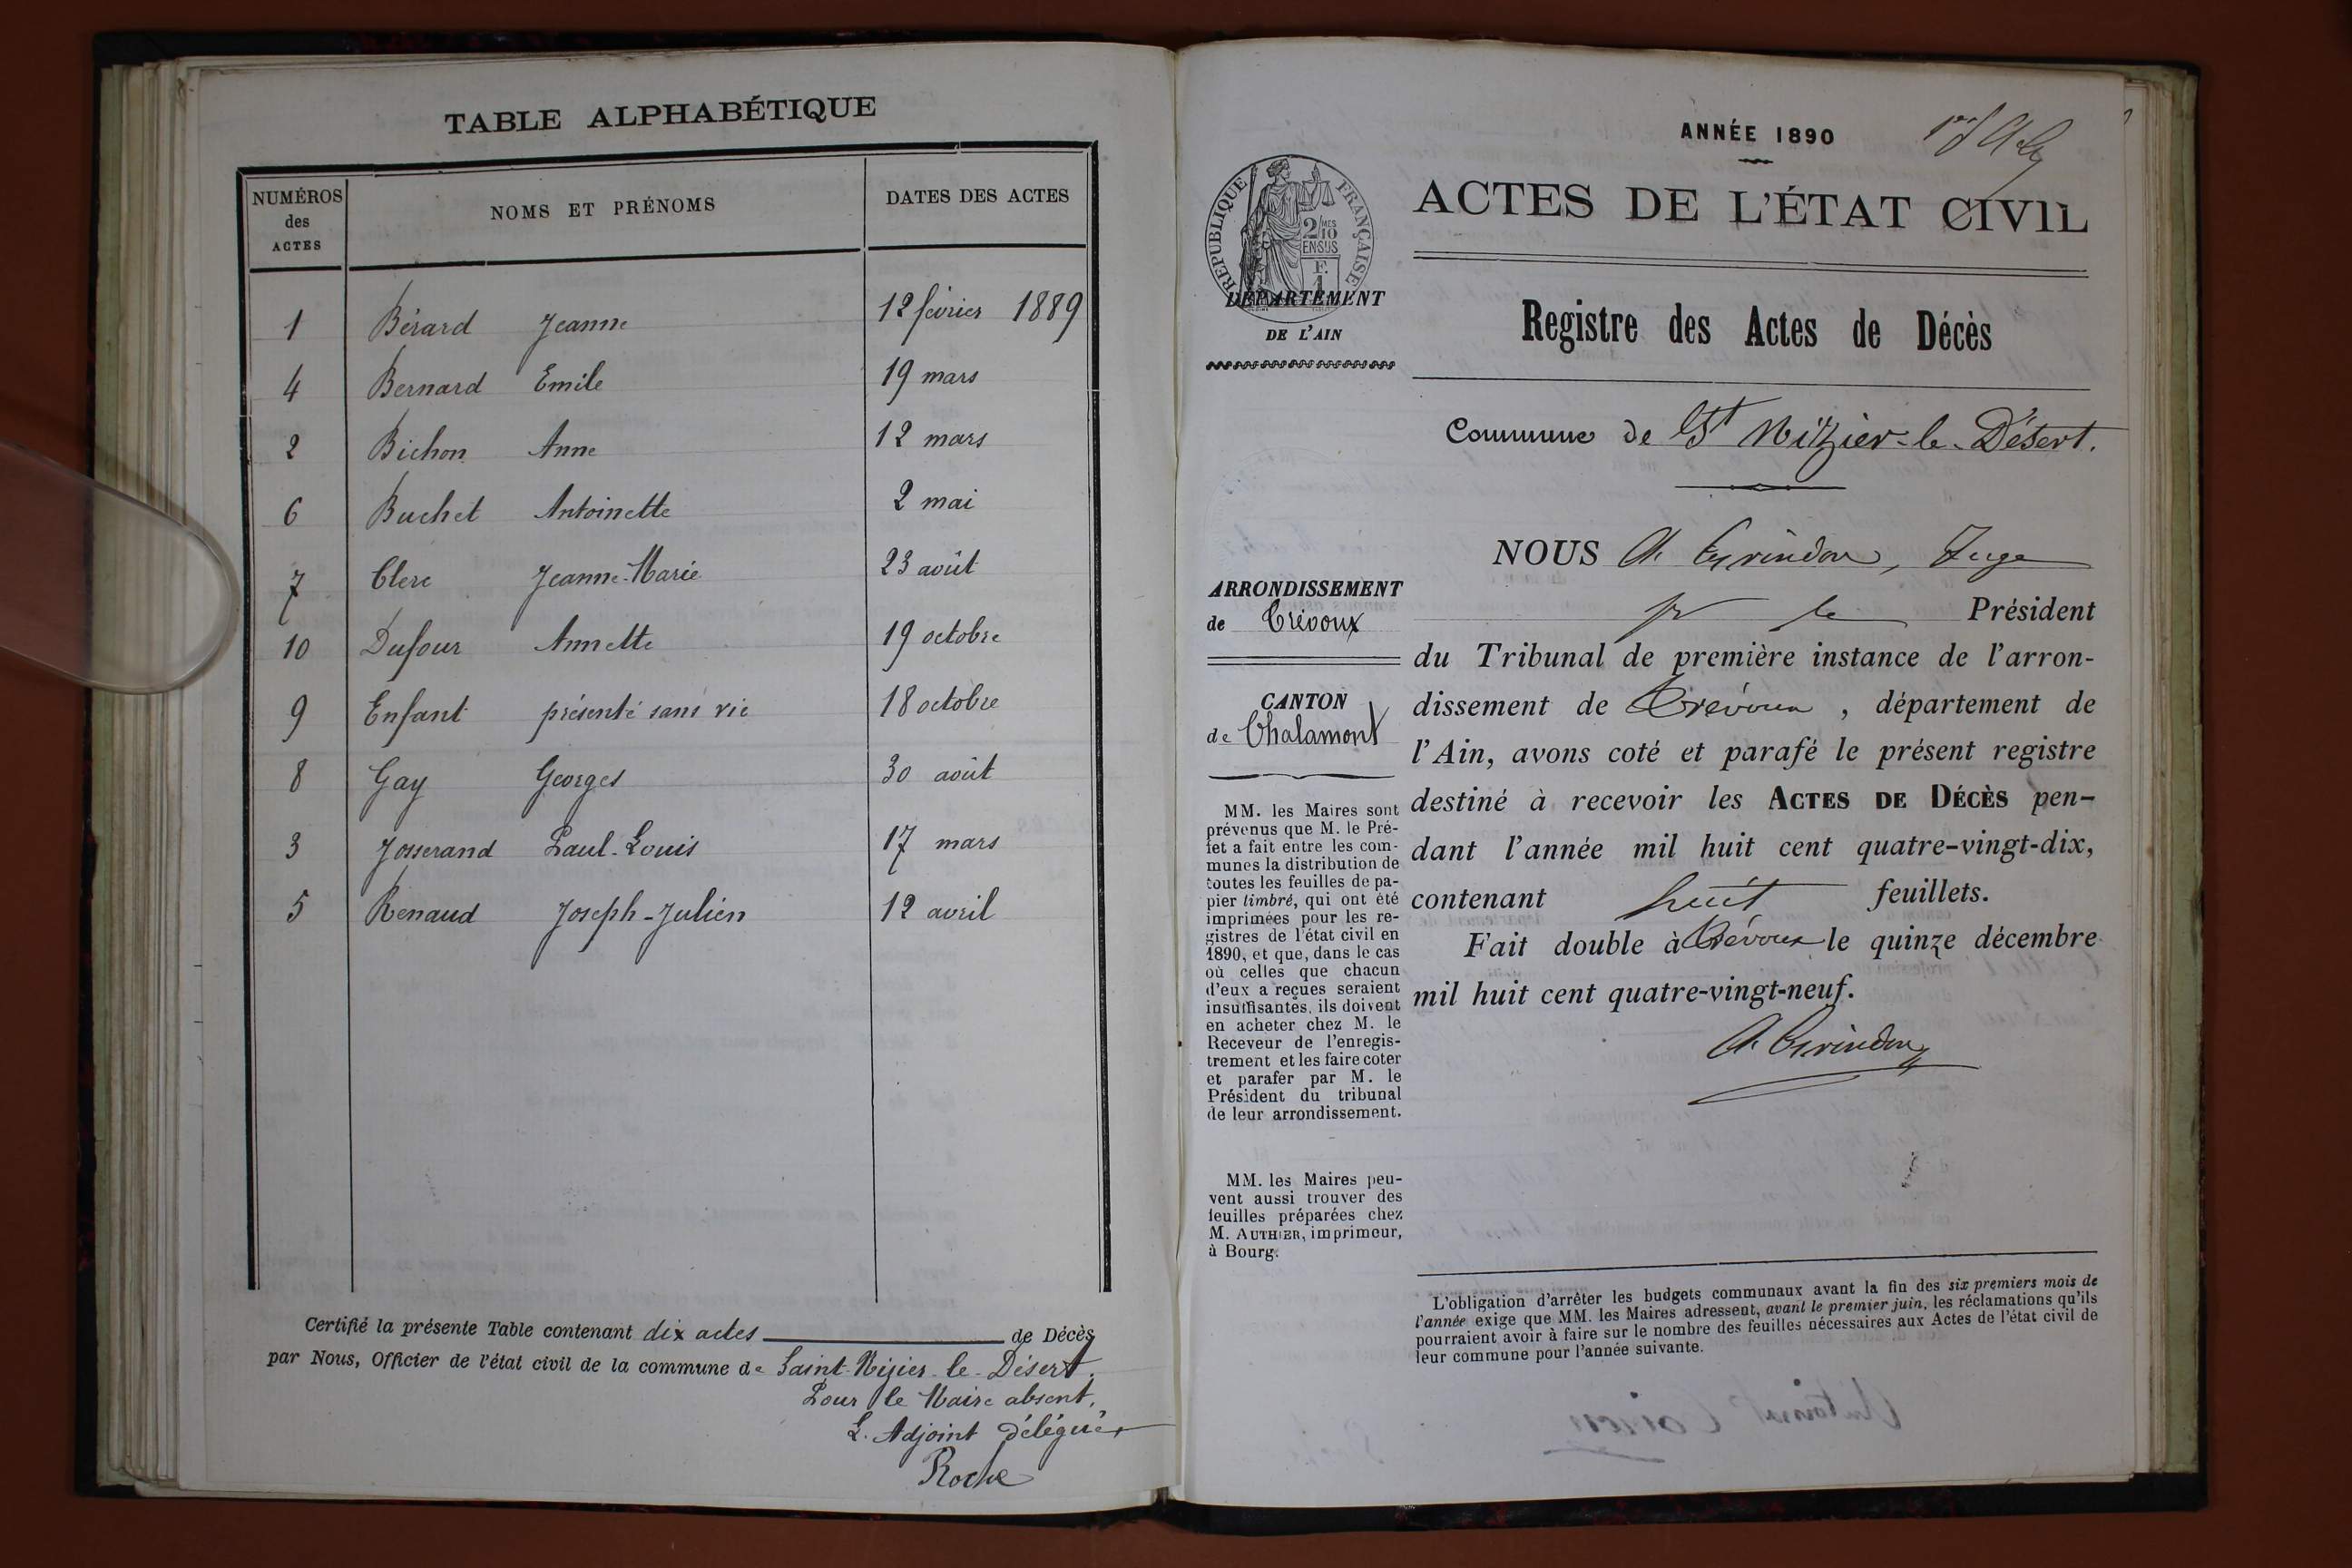 TABLE ALPHABÉTIQUE
NUMÉROS des ACTES NOMS ET PRÉNOMS DATES DES ACTES
1 Bérard Jeanne 12 février 1889
4 Bernard Emile 19 mars
2 Bichon Anne 12 mars
6 Buchet Antoinette 2 mai
7 Clerc Jeanne-Marie 23 août
10 Dufour Annette 19 octobre
9 Enfant présenté sans vie 18 octobre
8 Gay Georges 30 août
3 Josserand Paul-Louis 17 mars
5 Renaud Joseph-Julien 12 avril
Certifié la présente Table contenant dix actes de Décès
par Nous, Officier de l'état civil de la commune de Saint-Nizier-le-Désert.
Pour le Maire absent,
L'Adjoint délégué,
Roche
ANNÉE 1890
ACTES DE L'ÉTAT CIVIL
RÉPUBLIQUE FRANÇAISE
2/10MES
EN SUS
DÉPARTEMENT
DE L'AIN
Registre des Actes de Décès
Commune de St Nizier-le-Désert.
ARRONDISSEMENT
de Trévoux
CANTON
de Chalamont
MM. les Maires sont
prévenus que M. le Pré-
fet a fait entre les com-
munes la distribution de
toutes les feuilles de pa-
pier timbré, qui ont été
imprimées pour les re-
gistres de l'état civil en
1890, et que, dans le cas
où celles que chacun
d'eux a reçues seraient
insuffisantes, ils doivent
en acheter chez M. le
Receveur de l'enregis-
trement et les faire coter
et parafer par M. le
Président du tribunal
de leur arrondissement.
MM. les Maires peu-
vent aussi trouver des
feuilles préparées chez
M. AUTHIER, imprimeur,
à Bourg.
NOUS A. Grindon, Juge
pr le Président
du Tribunal de première instance de l'arron-
dissement de Trévoux, département de
l'Ain, avons coté et parafé le présent registre
destiné à recevoir les ACTES DE DÉCÈS pen-
dant l'année mil huit cent quatre-vingt-dix,
contenant huit feuillets.
Fait double à Trévoux le quinze décembre
mil huit cent quatre-vingt-neuf.
A. Grindon
L'obligation d'arrêter les budgets communaux avant la fin des six premiers mois de
l'année exige que MM. les Maires adressent, avant le premier juin, les réclamations qu'ils
pourraient avoir à faire sur le nombre des feuilles nécessaires aux Actes de l'état civil de
leur commune pour l'année suivante.